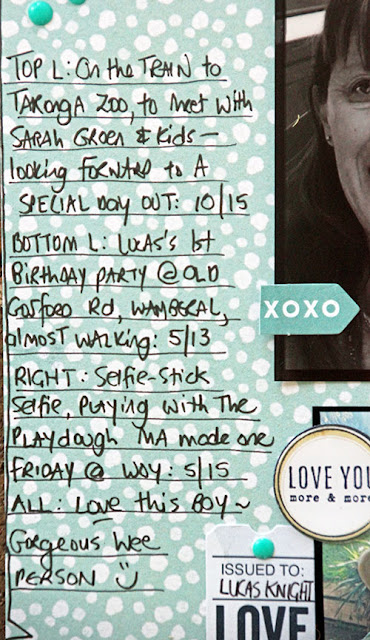 TOP L: On the TRAIN to
TARONGA ZOO, to meet with
SARAH GROEN & Kids —
looking FORWARD to A
SPECIAL DAY OUT: 10/15
BOTTOM L: LUCAS'S 1st
BIRTHDAY PARTY @ OLD
Gosford Rd, WAMBERAL,
almost WALKING: 5/13
RIGHT: Selfie-Stick
Selfie, PLAYING WITH THE
PLAYDOUGH MA MADE ONE
FRIDAY @ WOY: 5/15
ALL: LOVE this BOY ~
Gorgeous Wee
PERSON
XOXO
LOVE YOU
more & more
ISSUED TO:
LUCAS KNIGHT
LOVE